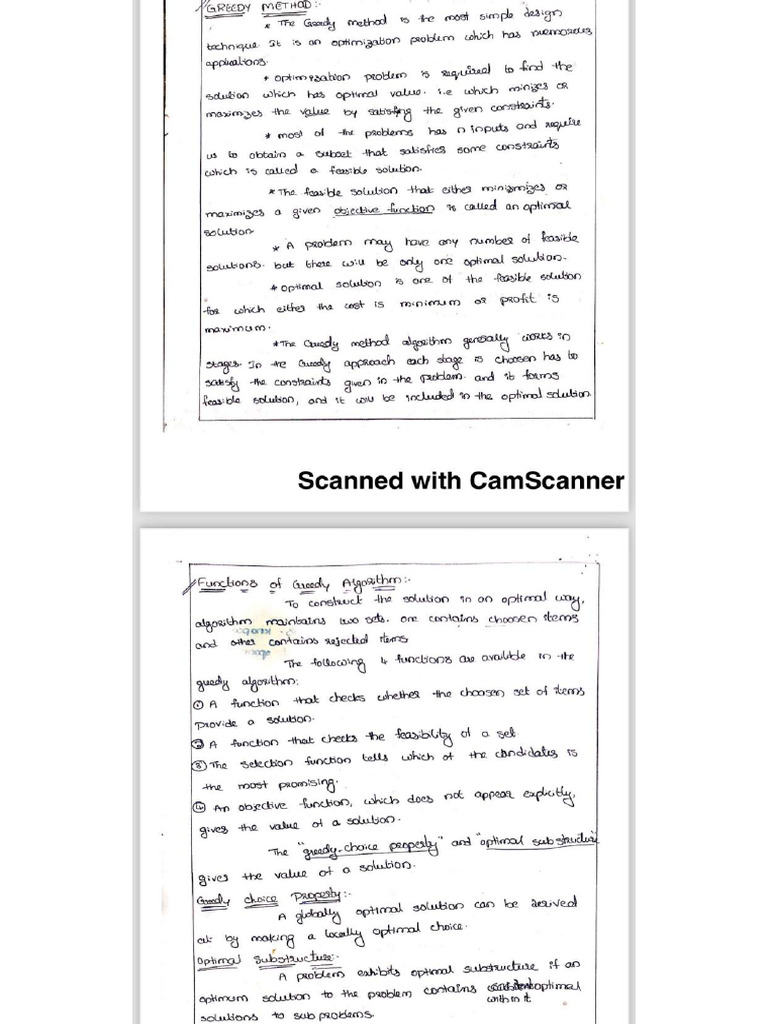 GREEDY METHOD:-
* The Greedy method is the most simple design
technique. It is an optimization problem which has numerous
applications.
* optimization problem is required to find the
solution which has optimal value. i.e which minizes or
maximizes the value by satisfing the given constraints.
* most of the problems has n inputs and require
us to obtain a subset that satisfies some constraints
which is called a feasible solution.
* The feasible solution that either minimizes or
maximizes a given objective function is called an optimal
solution
* A problem may have any number of feasible
solutions. but there will be only one optimal solution.
* optimal solution is one of the feasible solution
for which either the cost is minimum or profit is
maximum.
* The Greedy method algorithm generally works in
stages. In the Greedy approach each stage is choosen has to
satisfy the constraints given in the problem. and it forms
feasible solution, and it will be included in the optimal solution
Scanned with CamScanner
Functions of Greedy Algorithm:-
To construct the solution in an optimal way,
algorithm maintains two sets. one contains choosen items
and other contains rejected items
The following 4 functions are availble in the
greedy algorithm:
① A function that checks whether the choosen set of items
provide a solution.
② A function that checks the feasibility of a set.
③ The selection function tells which of the candidates is
the most promising.
④ An objective function, which does not appear explicitly,
gives the value of a solution.
The "greedy-choice property" and "optimal sub structure
gives the value of a solution.
Greedy choice Property:-
A globally optimal solution can be arived
at by making a locally optimal choice.
Optimal Substructure:-
A problem exhibits optimal substructure if an
optimum solution to the problem contains optimal
within it
solutions to sub problems.